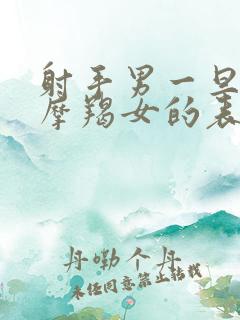 射手男一旦
摩羯女的表
丹嘞个丹
未经同意禁止转载